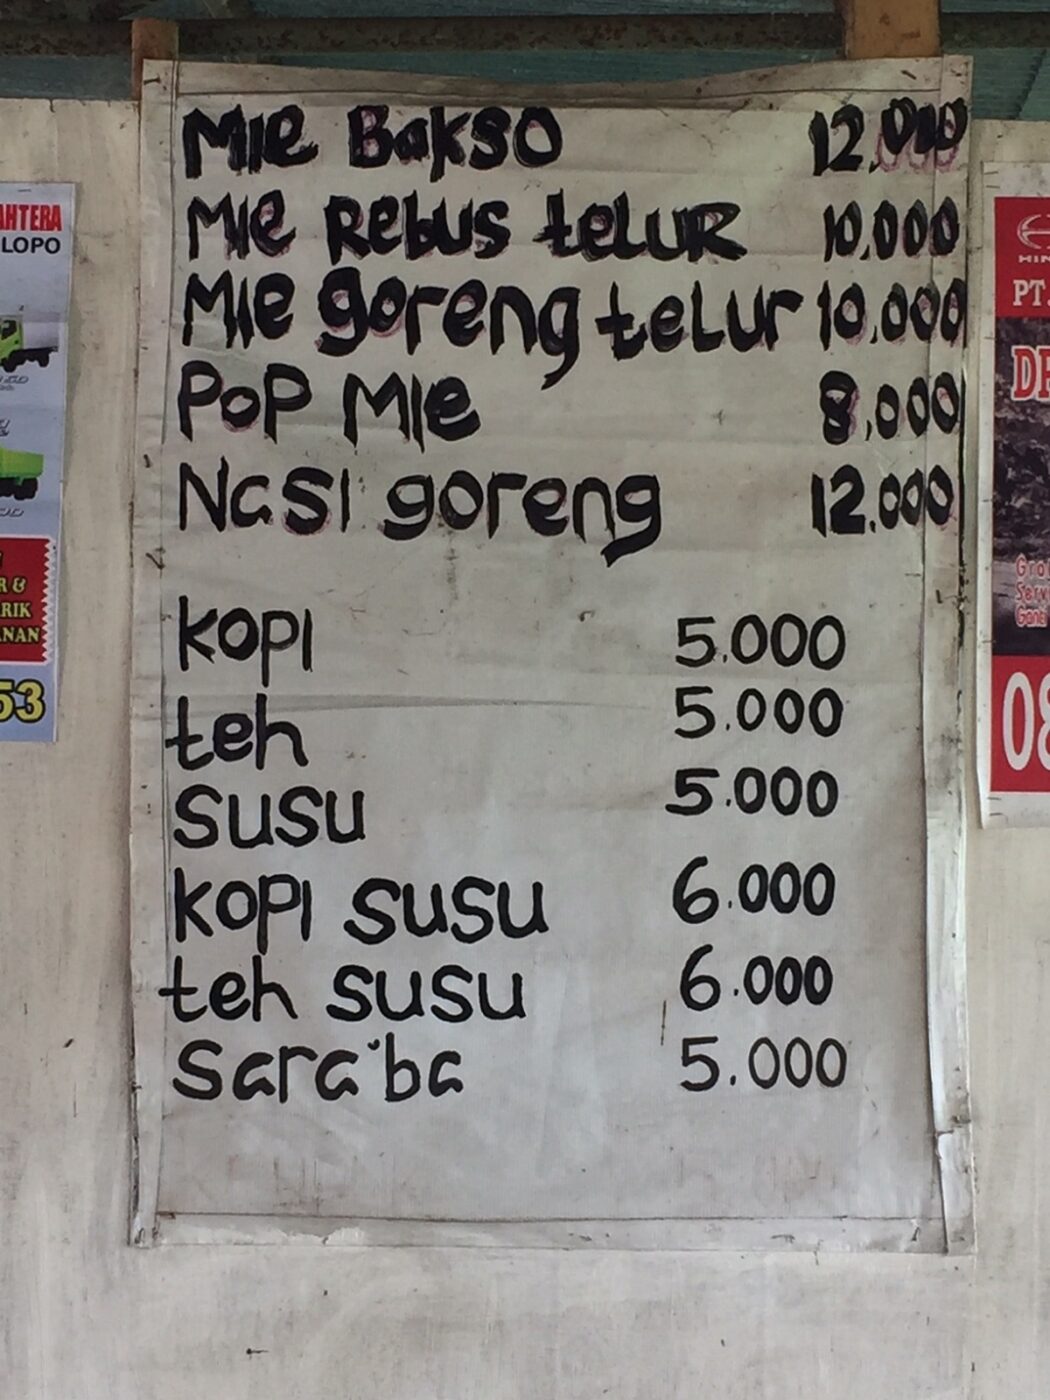 Mie Bakso 12.000
Mie Rebus telur 10.000
Mie goreng telur 10.000
PoP Mie 8.000
Nasi goreng 12.000
kopi 5.000
teh 5.000
susu 5.000
kopi susu 6.000
teh susu 6.000
Sara'ba 5.000
AHTERA
LOPO
R &
RIK
NAN
53
HIN
PT.
DE
08